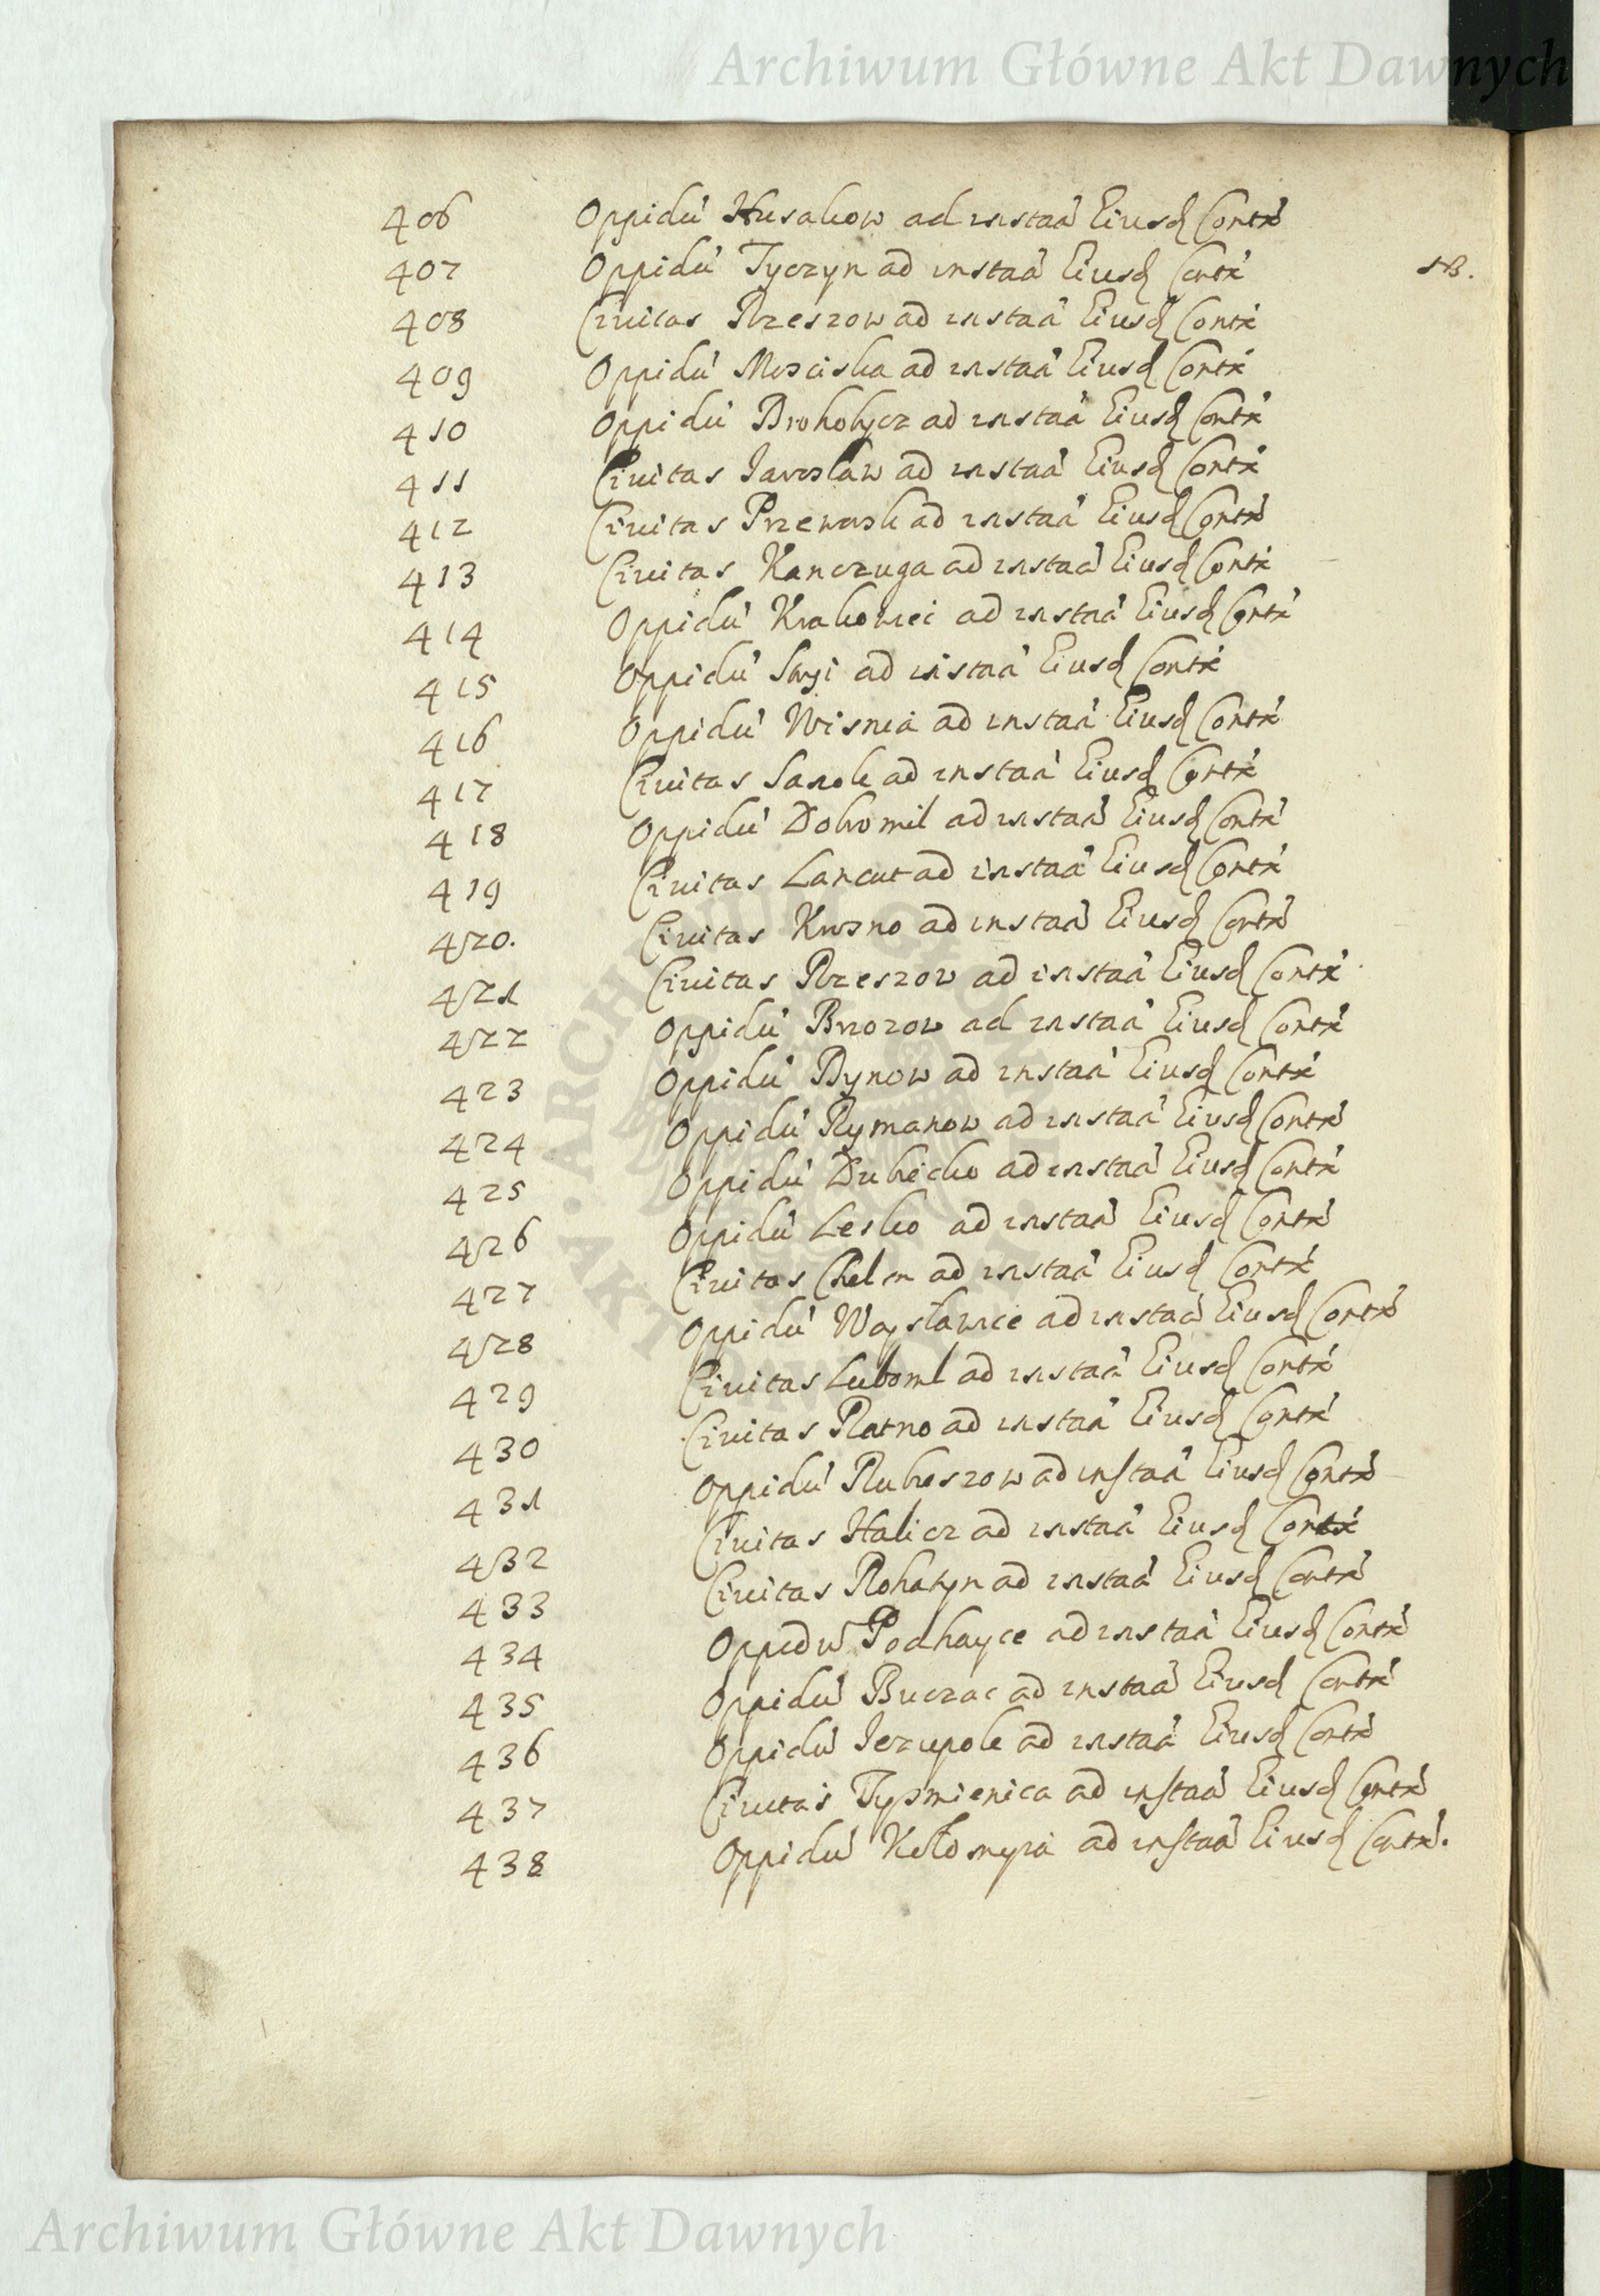 Archiwum Główne Akt Dawnych
406 Oppidũ Husakow ad instaã Eiusd Contr
407 Oppidũ Tyczyn ad instaã Eiusd Contr
408 Ciuitas Rzeszow ad instaã Eiusd Contr
409 Oppidũ Mosciska ad instaã Eiusd Contr
410 Oppidũ Drohobycz ad instaã Eiusd Contr
411 Ciuitas Jaroslaw ad instaã Eiusd Contr
412 Ciuitas Przeworsk ad instaã Eiusd Contr
413 Ciuitas Kanczuga ad instaã Eiusd Contr
414 Oppidũ Krakowiec ad instaã Eiusd Contr
415 Oppidũ Stryi ad instaã Eiusd Contr
416 Oppidũ Wisnia ad instaã Eiusd Contr
417 Ciuitas Sanok ad instaã Eiusd Contr
418 Oppidũ Dobromil ad instaã Eiusd Contr
419 Ciuitas Lancut ad instaã Eiusd Contr
420. Ciuitas Krosno ad instaã Eiusd Contr
421 Ciuitas Rzeszow ad instaã Eiusd Contr
422 Oppidũ Brzozow ad instaã Eiusd Contr
423 Oppidũ Dynow ad instaã Eiusd Contr
424 Oppidũ Rymanow ad instaã Eiusd Contr
425 Oppidũ Dubiecko ad instaã Eiusd Contr
426 Oppidũ Lesko ad instaã Eiusd Contr
427 Ciuitas Chelm ad instaã Eiusd Contr
428 Oppidũ Woyslawice ad instaã Eiusd Contr
429 Ciuitas Luboml ad instaã Eiusd Contr
430 Ciuitas Ratno ad instaã Eiusd Contr
431 Oppidũ Rubeszow ad instaã Eiusd Contr
432 Ciuitas Halicz ad instaã Eiusd Contr
433 Ciuitas Rohatyn ad instaã Eiusd Contr
434 Oppidũ Podhayce ad instaã Eiusd Contr
435 Oppidũ Buczac ad instaã Eiusd Contr
436 Oppidũ Jezupole ad instaã Eiusd Contr
437 Ciuitas Tysmienica ad instaã Eiusd Contr
438 Oppidũ Kolomyia ad instaã Eiusd Contr.
Archiwum Główne Akt Dawnych